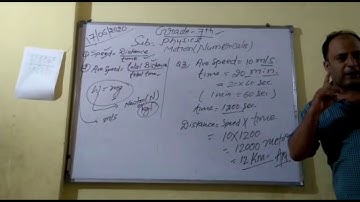 17/06/2020
Grade- 7th
Sub. Physics
Motion (Numericals)
① Speed = Distance / time
② Ave Speed = total Distance / Total time
W = mg
Newton (N)
m/s
Q3. Ave Speed = 10 m/s
time = 20 min.
= 20×60 sec
(1 min = 60 sec)
time = 1200 sec.
Distance = Speed × time
= 10×1200
= 12000 meter
= 12 Km Ans